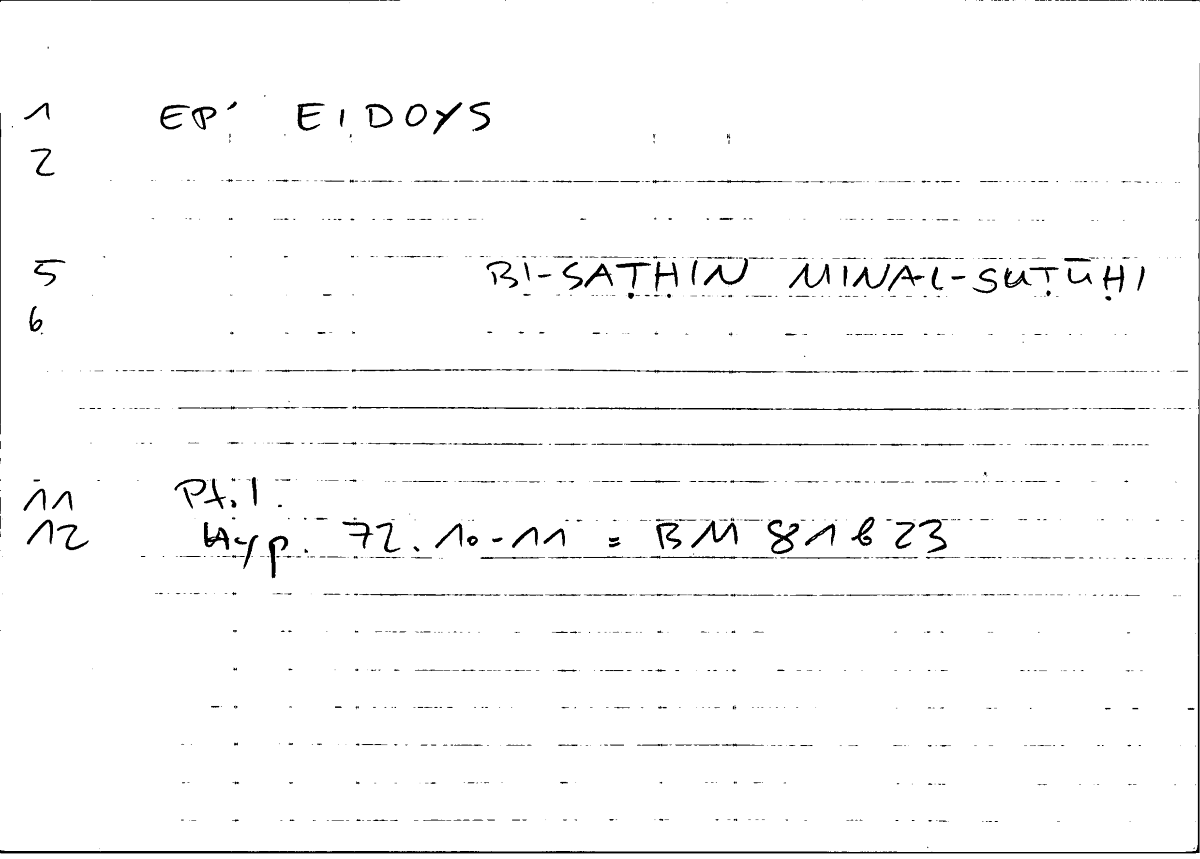 1 EP' EIDOYS
2
5 BI-SAṬḤIN MINAL-SUṬŪḤI
6
11 Pt. 1.
12 Hyp. 72.10-11 = BM 81b23